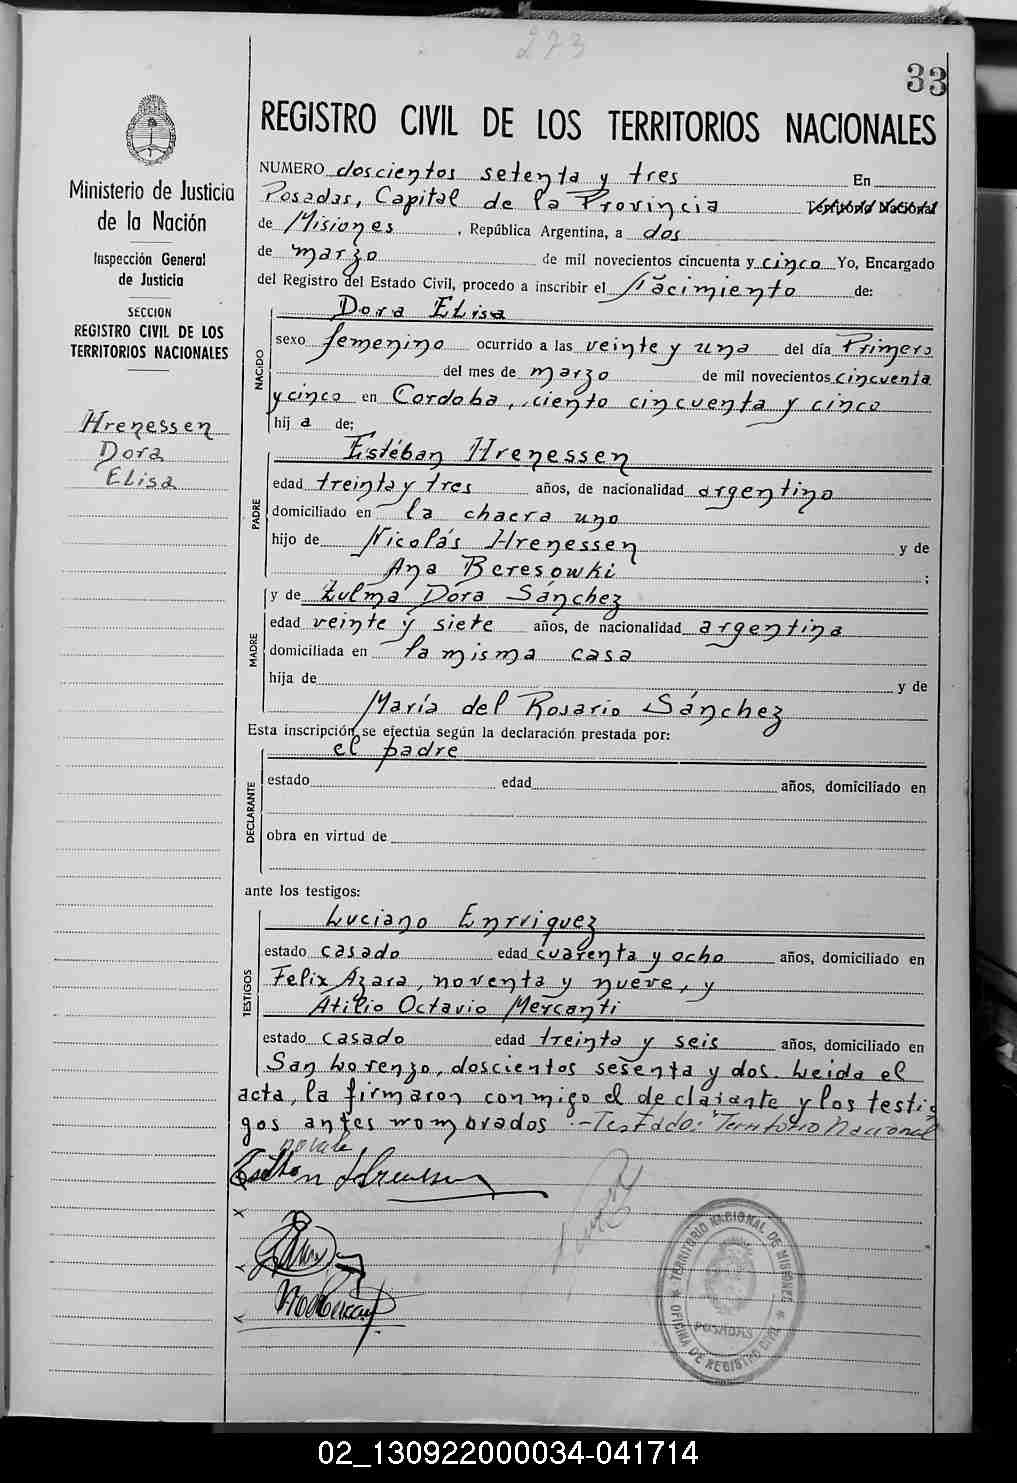 273
33
REGISTRO CIVIL DE LOS TERRITORIOS NACIONALES
Ministerio de Justicia
de la Nación
Inspección General
de Justicia
SECCION
REGISTRO CIVIL DE LOS
TERRITORIOS NACIONALES
Hrenessen
Dora
Elisa
NUMERO doscientos setenta y tres En
Posadas, Capital de la Provincia Territorio Nacional
de Misiones, República Argentina, a dos
de marzo de mil novecientos cincuenta y cinco Yo, Encargado
del Registro del Estado Civil, procedo a inscribir el Nacimiento de:
NACIDO
Dora Elisa
sexo femenino ocurrido a las veinte y una del día Primero
del mes de marzo de mil novecientos cincuenta
y cinco en Cordoba, ciento cincuenta y cinco
hij a de;
PADRE
Estéban Hrenessen
edad treinta y tres años, de nacionalidad argentino
domiciliado en la chacra uno
hijo de Nicolás Hrenessen y de
Ana Beresowki ;
MADRE
y de Zulma Dora Sánchez
edad veinte y siete años, de nacionalidad argentina
domiciliada en la misma casa
hija de y de
María del Rosario Sánchez
Esta inscripción se efectúa según la declaración prestada por:
DECLARANTE
el padre
estado edad años, domiciliado en
obra en virtud de
ante los testigos:
TESTIGOS
Luciano Enrriquez
estado casado edad cuarenta y ocho años, domiciliado en
Felix Azara, noventa y nueve, y
Atilio Octavio Mercanti
estado casado edad treinta y seis años, domiciliado en
San Lorenzo, doscientos sesenta y dos. Leida el
acta, la firmaron conmigo el declarante y los testi
gos antes nombrados.- Testado: Territorio Nacional
no vale
TERRITORIO NACIONAL DE MISIONES
POSADAS
OFICINA DE REGISTRO CIVIL
02_130922000034-041714